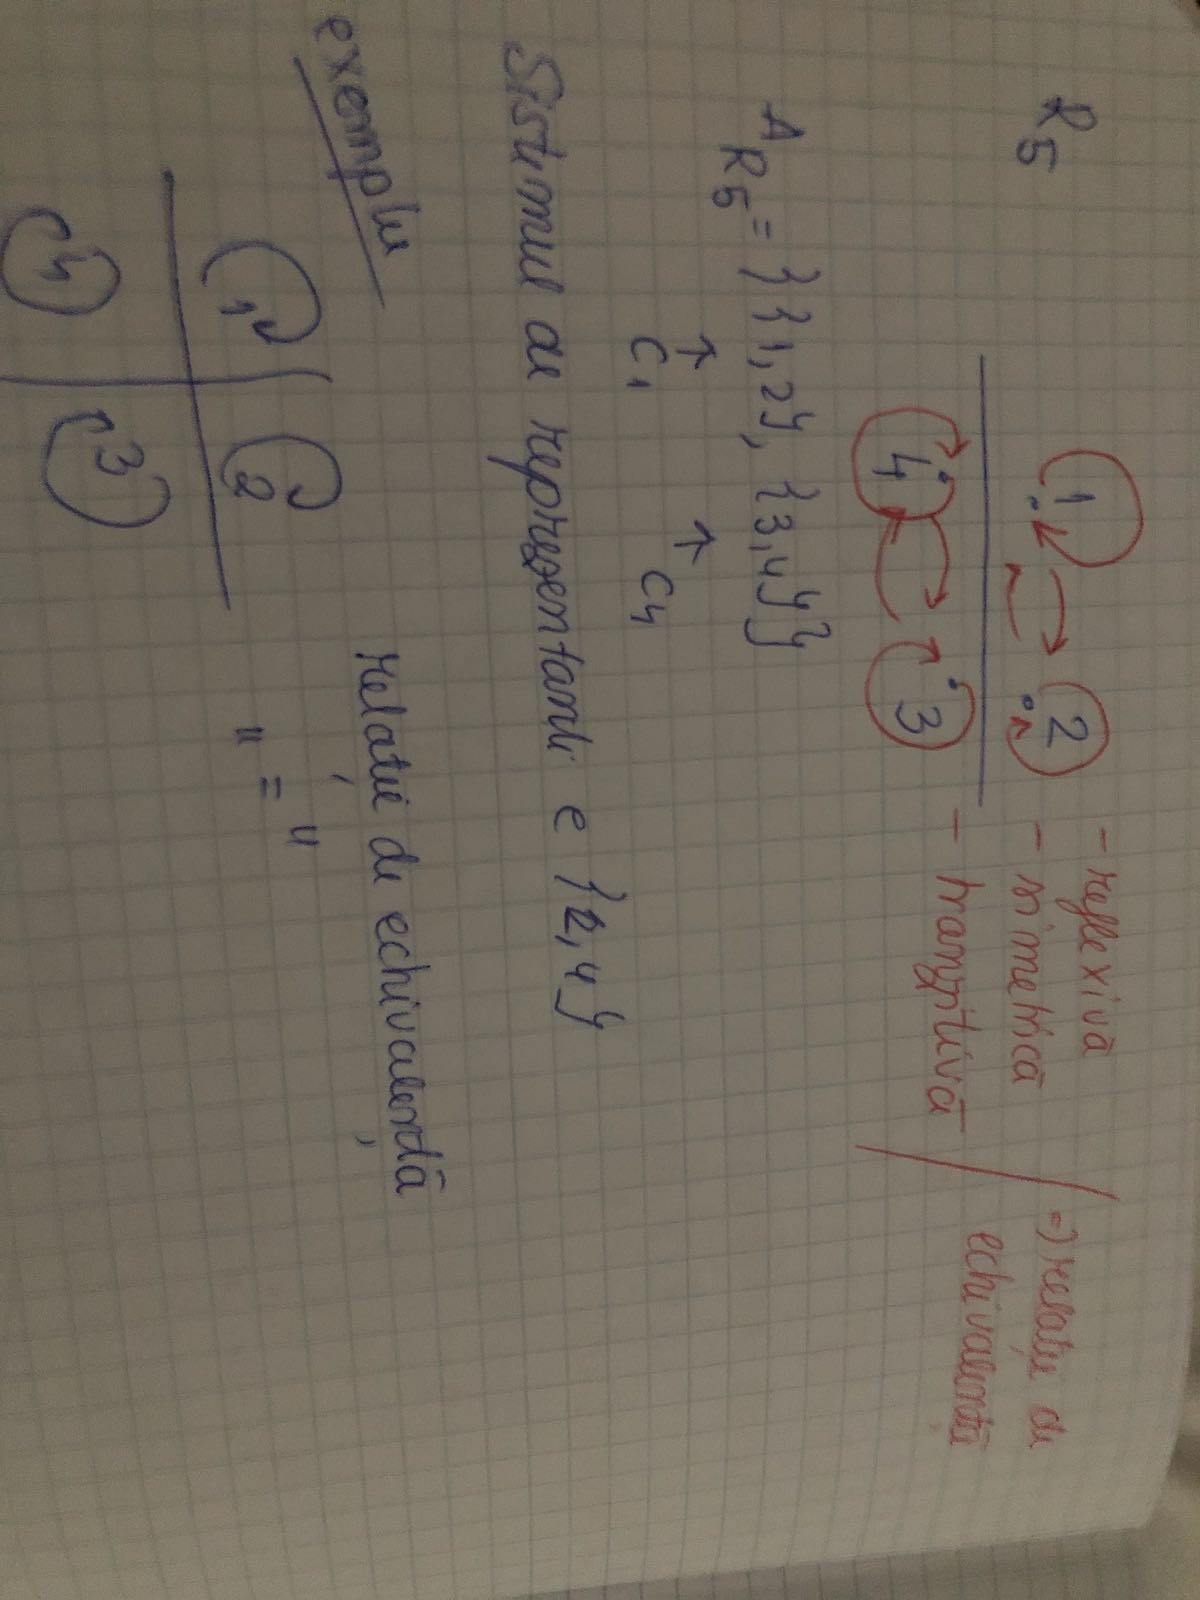 R5
1 2
4 3
- reflexivă
- simetrică
- tranzitivă
=) relație de
echivalență
A R5 = {{1,2}, {3,4}}
↑ ↑
C1 C4
Sistemul de reprezentanți e {2,4}
exemplu
1 2
4 3
relație de echivalență
" = "